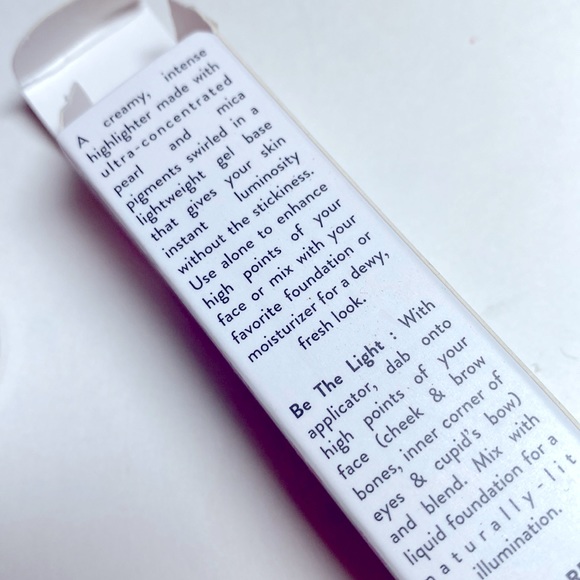 A creamy, intense
highlighter made with
ultra-concentrated
pearl and mica
pigments swirled in a
lightweight gel base
that gives your skin
instant luminosity
without the stickiness.
Use alone to enhance
high points of your
face or mix with your
favorite foundation or
moisturizer for a dewy,
fresh look.
Be The Light : With
applicator, dab onto
high points of your
face (cheek & brow
bones, inner corner of
eyes & cupid's bow)
and blend. Mix with
liquid foundation for a
aturally-lit
illumination.